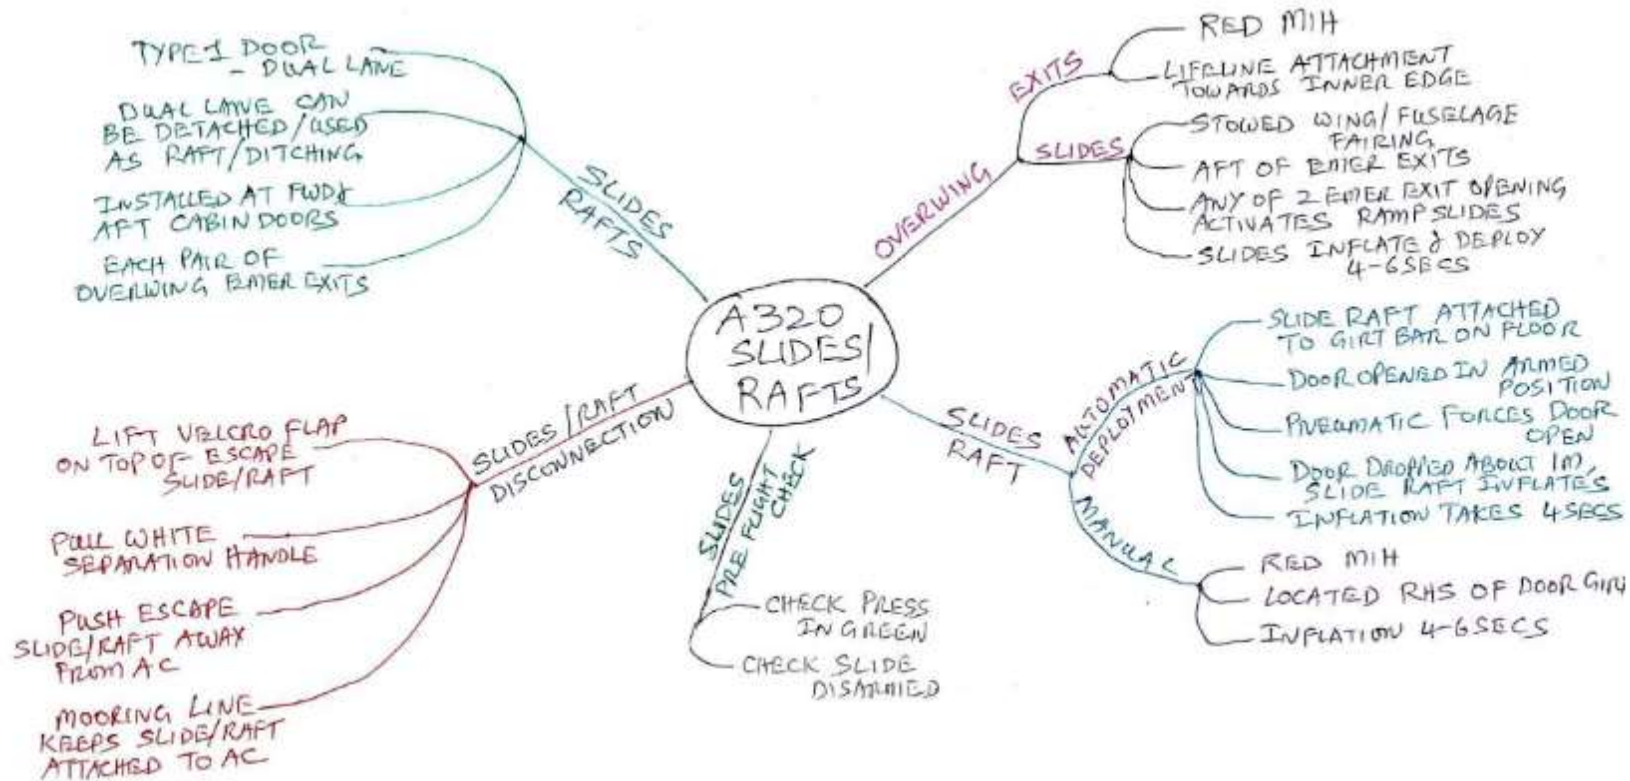 A320
SLIDES/
RAFTS
SLIDES
RAFTS
TYPE 1 DOOR
- DUAL LANE
DUAL LANE CAN
BE DETACHED/USED
AS RAFT/DITCHING
INSTALLED AT FWD &
AFT CABIN DOORS
EACH PAIR OF
OVERWING EMER EXITS
OVERWING
EXITS
RED MIH
LIFELINE ATTACHMENT
TOWARDS INNER EDGE
SLIDES
STOWED WING/FUSELAGE
FAIRING
AFT OF EMER EXITS
ANY OF 2 EMER EXIT OPENING
ACTIVATES RAMP SLIDES
SLIDES INFLATE & DEPLOY
4-6SECS
SLIDES
RAFT
AUTOMATIC
DEPLOYMENT
SLIDE RAFT ATTACHED
TO GIRT BAR ON FLOOR
DOOR OPENED IN ARMED
POSITION
PNEUMATIC FORCES DOOR
OPEN
DOOR DROPPED ABOUT 1M,
SLIDE RAFT INFLATES
INFLATION TAKES 4SECS
MANUAL
RED MIH
LOCATED RHS OF DOOR GIRT
INFLATION 4-6SECS
SLIDES
PRE FLIGHT
CHECK
CHECK PRESS
IN GREEN
CHECK SLIDE
DISARMED
SLIDES/RAFT
DISCONNECTION
LIFT VELCRO FLAP
ON TOP OF ESCAPE
SLIDE/RAFT
PULL WHITE
SEPARATION HANDLE
PUSH ESCAPE
SLIDE/RAFT AWAY
FROM AC
MOORING LINE
KEEPS SLIDE/RAFT
ATTACHED TO AC